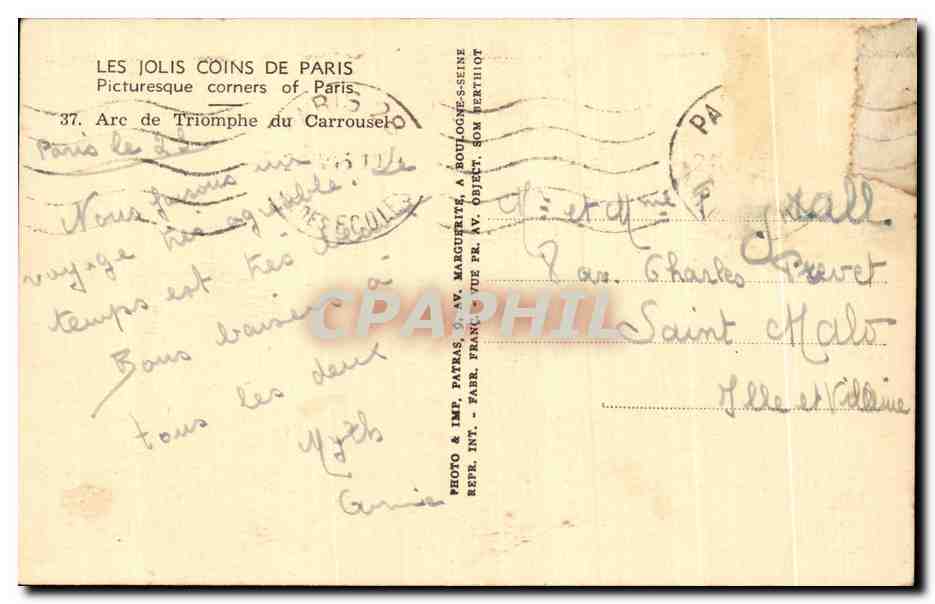 LES JOLIS COINS DE PARIS
Picturesque corners of Paris
37. Arc de Triomphe du Carrousel
Paris le
Nous faisons un
voyage très agréable. Le
temps est très
Bons baisers à
tous les deux
PHOTO & IMP, PATRAS, 9, AV. MARGUERITE, A BOULOGNE-S-SEINE
REPR. INT. - FABR. FRANÇ. - VUE PR. AV. OBJECT. SOM BERTHIOT
PA
DES ECOLES
et Mme
8 av. Charles Prevet
Saint Malo
Ille et Villaine
CPAPHIL